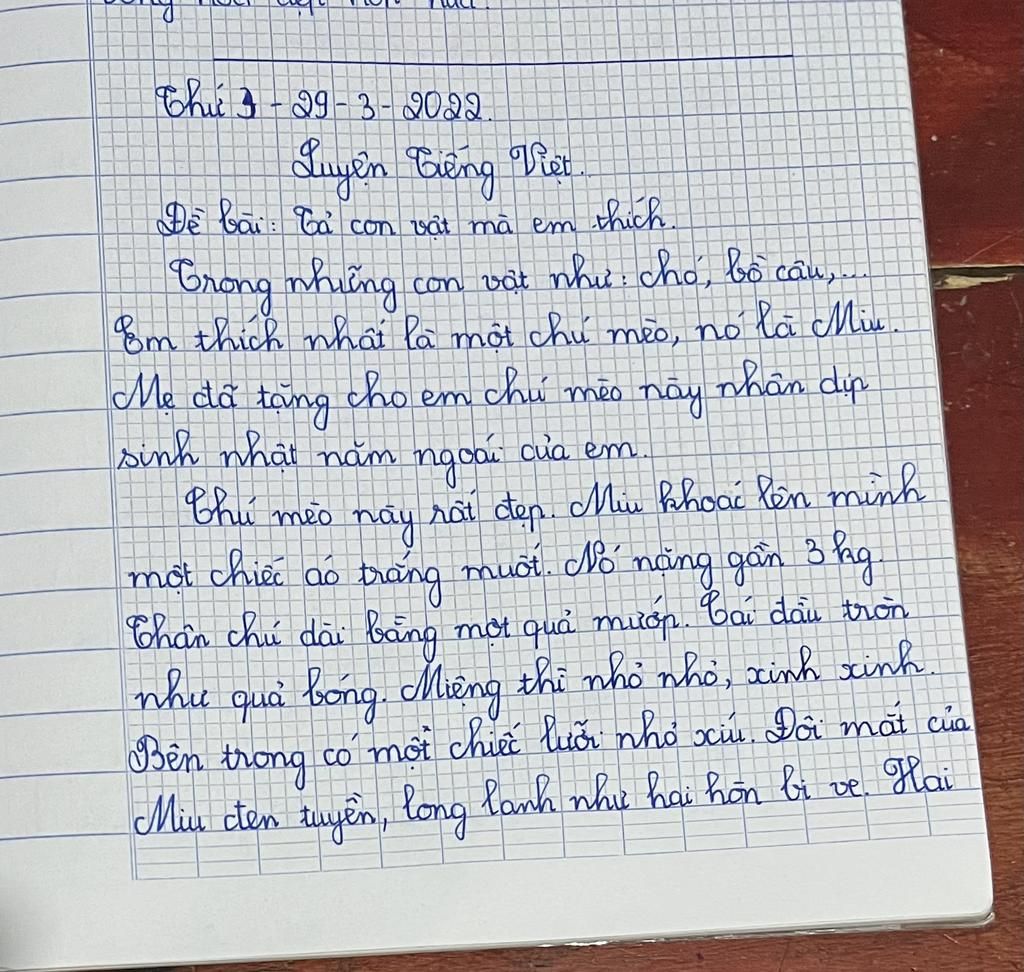 Thứ 3 - 29 - 3 - 2022.
Luyện Tiếng Việt.
Đề bài: Tả con vật mà em thích.
Trong những con vật như: chó, bồ câu,...
Em thích nhất là một chú mèo, nó là Miu.
Mẹ đã tặng cho em chú mèo này nhân dịp
sinh nhật năm ngoái của em.
Chú mèo này rất đẹp. Miu khoác lên mình
một chiếc áo trắng muốt. Nó nặng gần 3 kg.
Thân chú dài bằng một quả mướp. Cái đầu tròn
như quả bóng. Miệng thì nhỏ nhỏ, xinh xinh.
Bên trong có một chiếc lưỡi nhỏ xíu. Đôi mắt của
Miu đen tuyền, long lanh như hai hòn bi ve. Hai